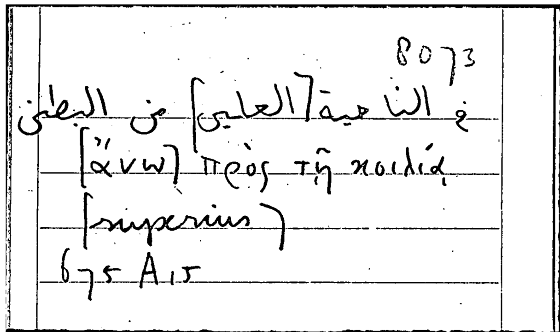 8073
في الناحية [العليى] من البطن
[ἄνω] πρὸς τῇ κοιλίᾳ
[superius]
675 A 15